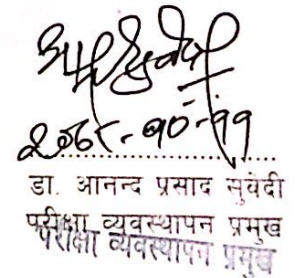 २०७९-१०-११
डा. आनन्द प्रसाद सुवेदी
परीक्षा व्यवस्थापन प्रमुख
परीक्षा व्यवस्थापन प्रमुख